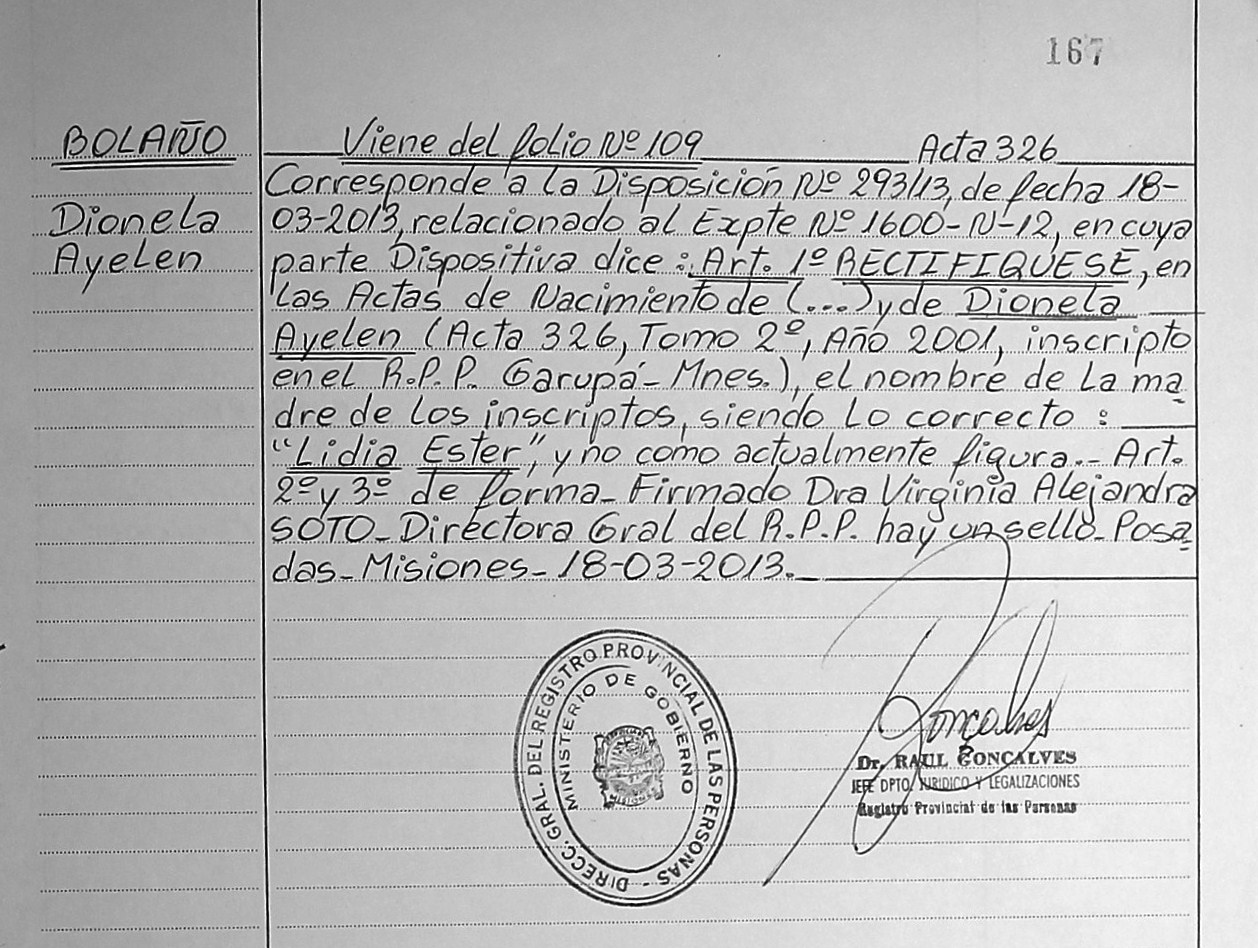 167
BOLAÑO
Dionela
Ayelen
Viene del folio Nº 109 Acta 326
Corresponde a la Disposición Nº 293/13, de fecha 18-
03-2013, relacionado al Expte Nº 1600-N-12, en cuya
parte Dispositiva dice: Art. 1º RECTIFIQUESE, en
las Actas de Nacimiento de (...) y de Dionela
Ayelen (Acta 326, Tomo 2º, Año 2001, inscripto
en el R.P.P. Garupá-Mnes.), el nombre de la ma
dre de los inscriptos, siendo lo correcto:
"Lidia Ester", y no como actualmente figura.- Art.
2º y 3º de forma- Firmado Dra Virginia Alejandra
SOTO- Directora Gral del R.P.P. hay un sello- Posa
das- Misiones- 18-03-2013.-
DIRECC. GRAL. DEL REGISTRO PROVINCIAL DE LAS PERSONAS -
MINISTERIO DE GOBIERNO
MISIONES
Gonçalves
Dr. RAUL GONCALVES
JEFE DPTO. JURIDICO Y LEGALIZACIONES
Registro Provincial de las Personas